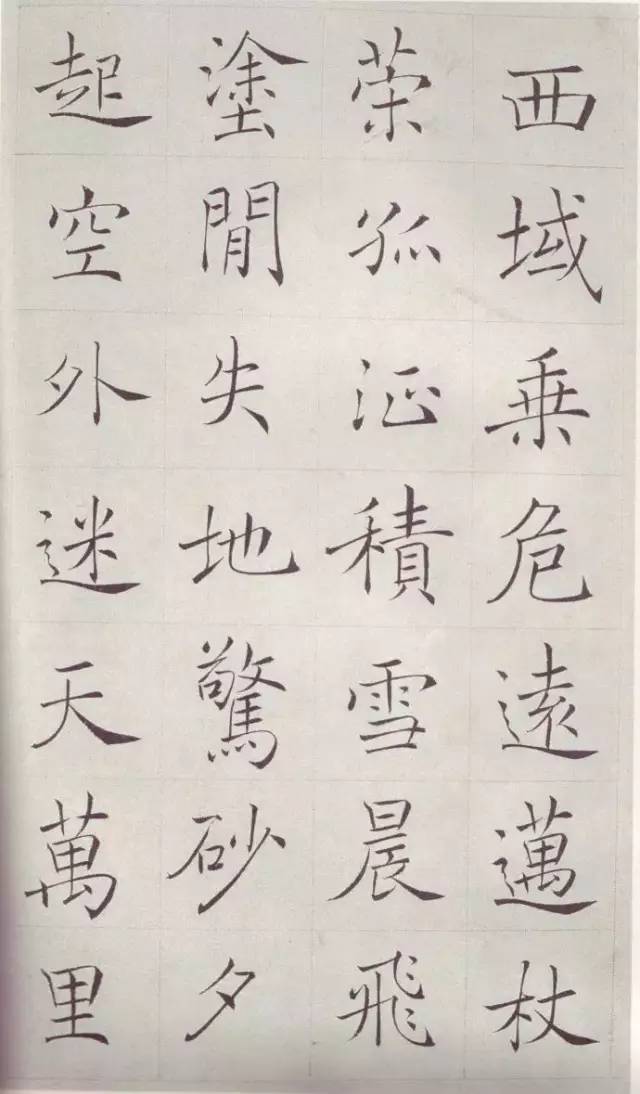 西域乗危遠邁杖
策孤征積雪晨飛
塗閒失地驚砂夕
起空外迷天萬里